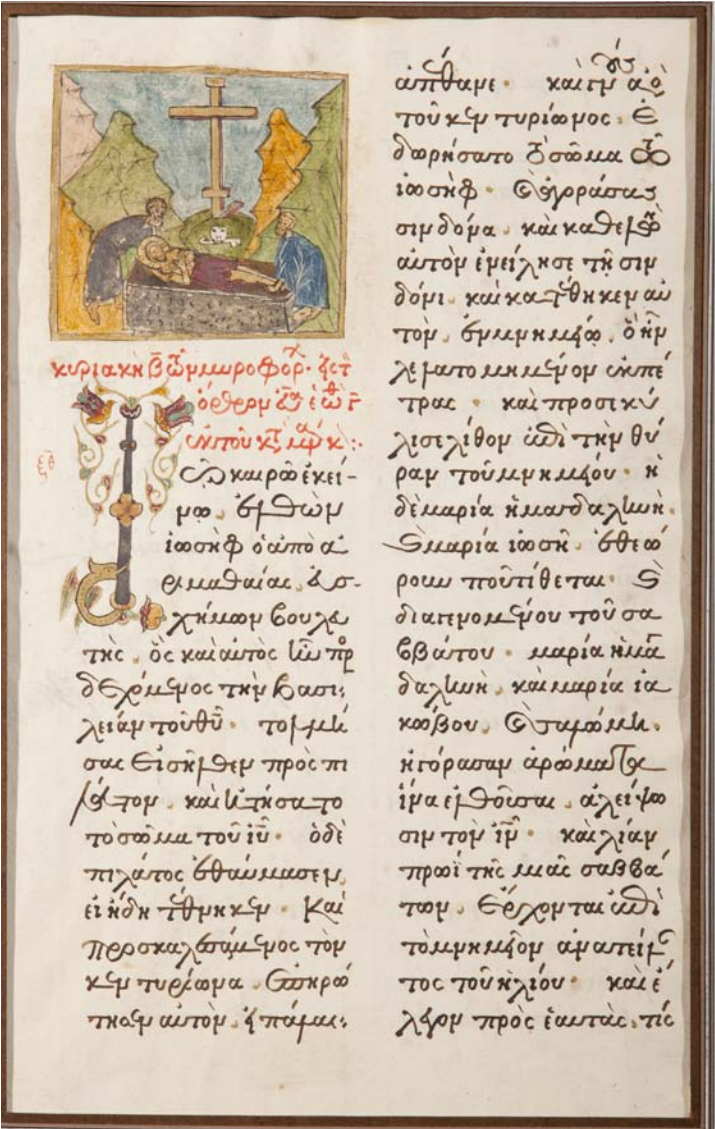 κυριακὴ β τῶν μυροφόρ·
ὄρθρον ἑωθ γ
ἐκ τοῦ μρκ :·
Τῶ καιρῶ ἐκεί-
νω, ἐλθὼν
ἰωσὴφ ὁ ἀπὸ ἀ
ριμαθαίας, εὐσ-
χήμων βουλευ
τὴς, ὃς καὶ αὐτὸς ἦν προσ
δεχόμενος τὴν βασι:
λείαν τοῦ θυ̅· τολμή
σας εἰσῆλθεν πρὸς πι
λάτον, καὶ ἠτήσατο
τὸ σῶμα τοῦ ιυ̅· ὁ δὲ
πιλάτος ἐθαύμασεν,
εἰ ἤδη τέθνηκεν· καὶ
προσκαλεσάμενος τὸν
κεντυρίωνα, ἐπηρώ
τησεν αὐτὸν, εἰ πάλαι:
ἀπέθανε· καὶ γνοὺς ἀπὸ
τοῦ κεντυρίωνος, ἐ
δωρήσατο τὸ σῶμα τῶ
ἰωσήφ· καὶ ἀγοράσας
σινδόνα, καὶ καθελὼν
αὐτὸν ἐνείλησε τῆ σιν
δόνι, καὶ κατέθηκεν αὐ
τὸν, ἐν μνημείω, ὃ ἦν
λελατομημένον ἐκ πέ
τρας· καὶ προσικύ
λισε λίθον ἐπὶ τὴν θύ
ραν τοῦ μνημείου· ἡ
δὲ μαρία ἡ μαγδαληνὴ,
καὶ μαρία ἰωσῆ, ἐθεώ
ρουν ποῦ τίθεται· καὶ
διαγενομένου τοῦ σα
ββάτου· μαρία ἡ μαγ
δαληνὴ, καὶ μαρία ἰα
κώβου, καὶ σαλώμη,
ἠγόρασαν ἀρώματα
ἵνα ἐλθοῦσαι, ἀλείψω
σιν τὸν ιν̅· καὶ λίαν
πρωῒ τῆς μιᾶς σαββά
των, ἔρχονται ἐπὶ
τὸ μνημεῖον ἀνατείλαν
τος τοῦ ἡλίου· καὶ ἔ
λεγον πρὸς ἑαυτὰς, τίς